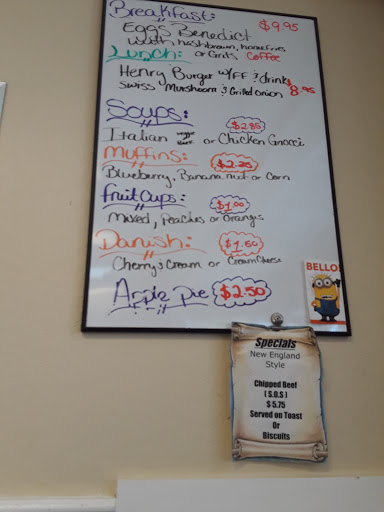 Breakfast:
$9.95
Eggs Benedict
with hashbrown, homefries
Lunch: or Grits Coffee
Henry Burger w/FF & drink
Swiss Mushroom & Grilled onion $8.95
Soups:
$2.85
Italian or Chicken Gnocci
Muffins: $2.25
Blueberry, Banana nut or Corn
Fruit Cups: $1.00
Mixed, Peaches or Oranges
Danish: $1.50
Cherry & Cream or Cream Cheese
Apple Pie $2.50
BELLO!
Specials
New England
Style
Chipped Beef
( S.O.S )
$ 5.75
Served on Toast
Or
Biscuits